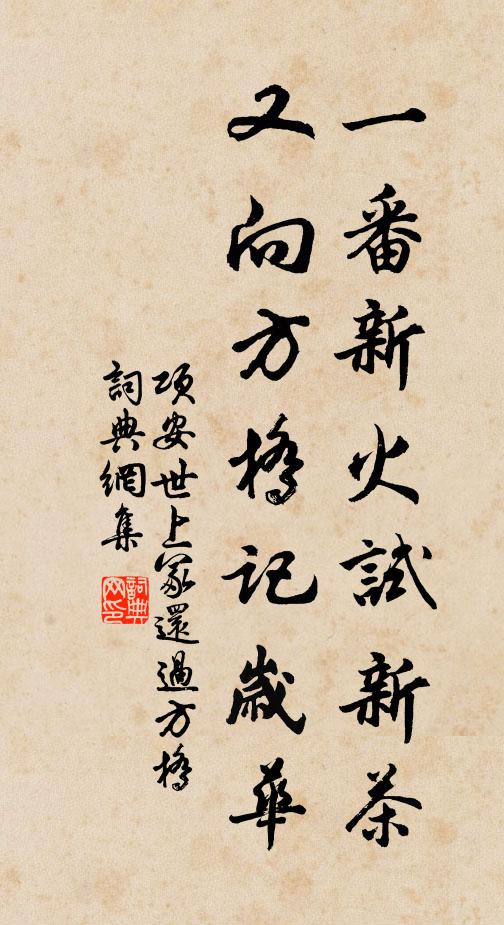 一番新火試新茶
又向方橋記歲華
項安世上冢還過方橋
詞典網集
詞典網印